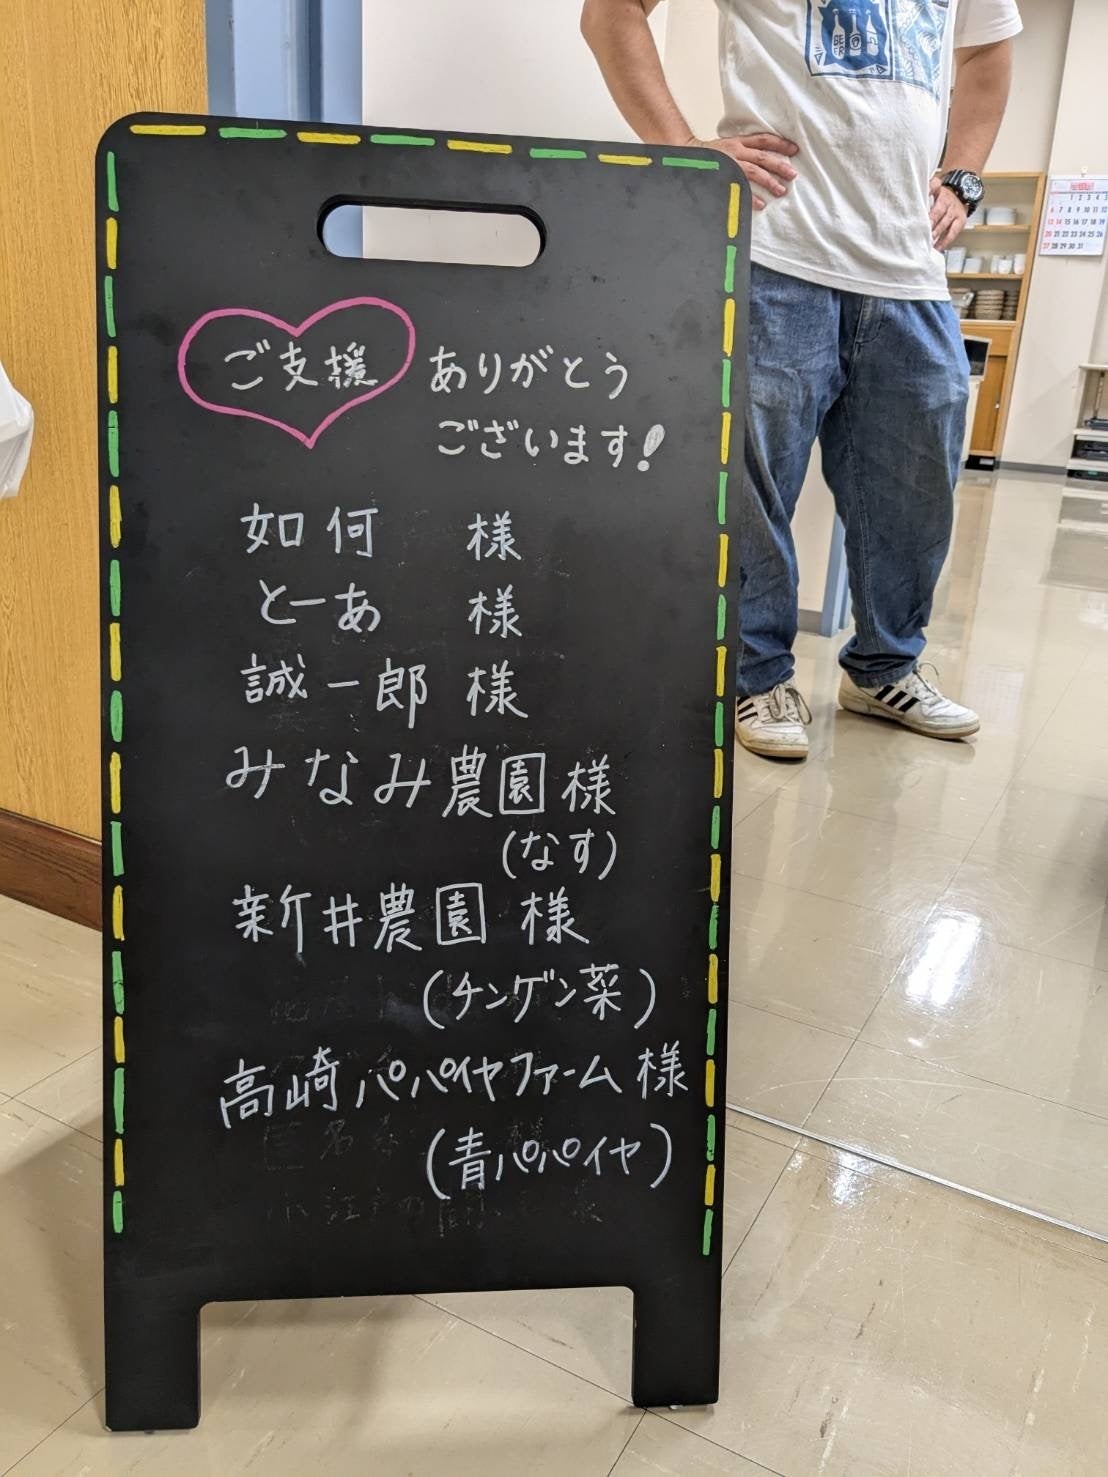 ご支援 ありがとう
ございます!
如何 様
とーあ 様
誠一郎 様
みなみ農園様
(なす)
新井農園 様
(チンゲン菜)
高崎パパイヤファーム様
(青パパイヤ)